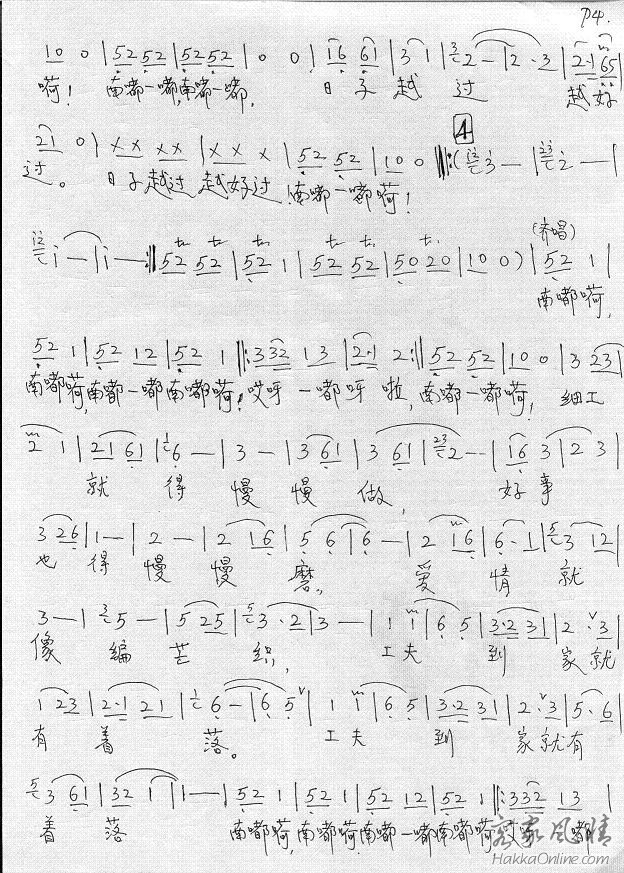 P4.
1 0 0 | 5 2 5 2 | 5 2 5 2 | 0 0 | 1 6 6 1 | 3 1 | 3 2 - | 2 · 3 | 2 · 1 6 5 |
嗬! 南嘟一嘟,南嘟一嘟, 日子越过 越好
2 1 0 | X X X X | X X X | 5 2 5 2 | 1 0 0 4 ‖: ( 1 2 3 - | 2 3 2 - |
过。 日子越过 越好过 南嘟一嘟嗬!
1 2 1 - | 1 - :‖ 5 2 5 2 | 5 2 1 | 5 2 5 2 | 5 0 2 0 | 1 0 0 ) | (齐唱) 5 2 1 |
南嘟嗬,
5 2 1 | 5 2 1 2 | 5 2 1 ‖: 3 3 2 1 3 | 2 · 1 2 :‖ 5 2 5 2 | 1 0 0 | 3 2 3 |
南嘟嗬,南嘟一嘟南嘟嗬!哎呀一嘟呀啦,南嘟一嘟嗬! 细工
2 1 | 2 1 6 1 | 1 6 - | 3 - | 3 6 1 | 3 6 1 | 2 3 2 - - | 1 6 3 | 2 3 |
就得慢慢做, 好事
3 2 6 | 1 - | 2 - | 2 1 6 | 5 6 | 6 - | 2 1 6 | 6 · 1 | 5 3 1 2 |
也得慢慢磨。 爱情就
3 - | 3 5 - | 5 2 5 | 5 3 · 2 | 3 - | 1 1 | 6 5 | 3 · 2 3 | 2 · 3 |
像编芒织, 工夫到家就
1 2 3 | 2 · 1 2 1 | 1 6 - | 6 5 | 1 1 | 6 5 | 3 · 2 3 1 | 2 · 3 | 5 · 6 |
有着落。 工夫到家就有
5 3 6 1 | 3 2 1 | 1 - | 5 2 1 | 5 2 1 | 5 2 1 2 | 5 2 1 ‖: 3 3 2 1 3 |
着落 南嘟嗬,南嘟嗬,南嘟一嘟南嘟嗬 嘟
客家风情
HakkaOnline.com